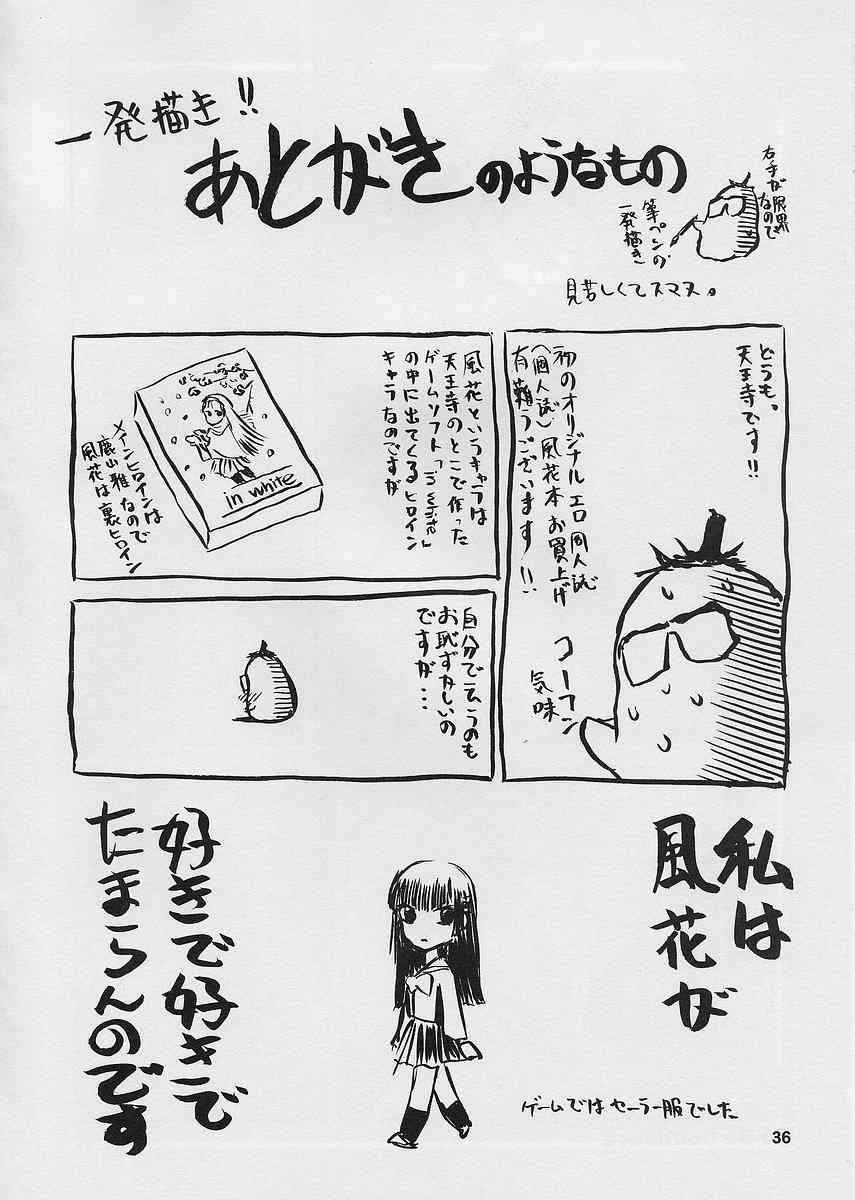 一発描き!!
あとがきのようなもの
右手が限界
なので
筆ペンの
一発描き
見苦しくてスマヌ。
どうも。
天王寺です!!
初のオリジナルエロ同人誌
(個人誌)風花本お買上げ
有難うございます!!
コーフン
気味
風花というキャラは
天王寺のとこで作った
ゲームソフト「in white」
の中に出てくるヒロイン
キャラなのですが
in white
メインヒロインは
鹿山雅なので
風花は裏ヒロイン
自分で云うのも
お恥ずかしいの
ですが・・・
私は
風花が
好きで好きで
たまらんのです
ゲームではセーラー服でした
36